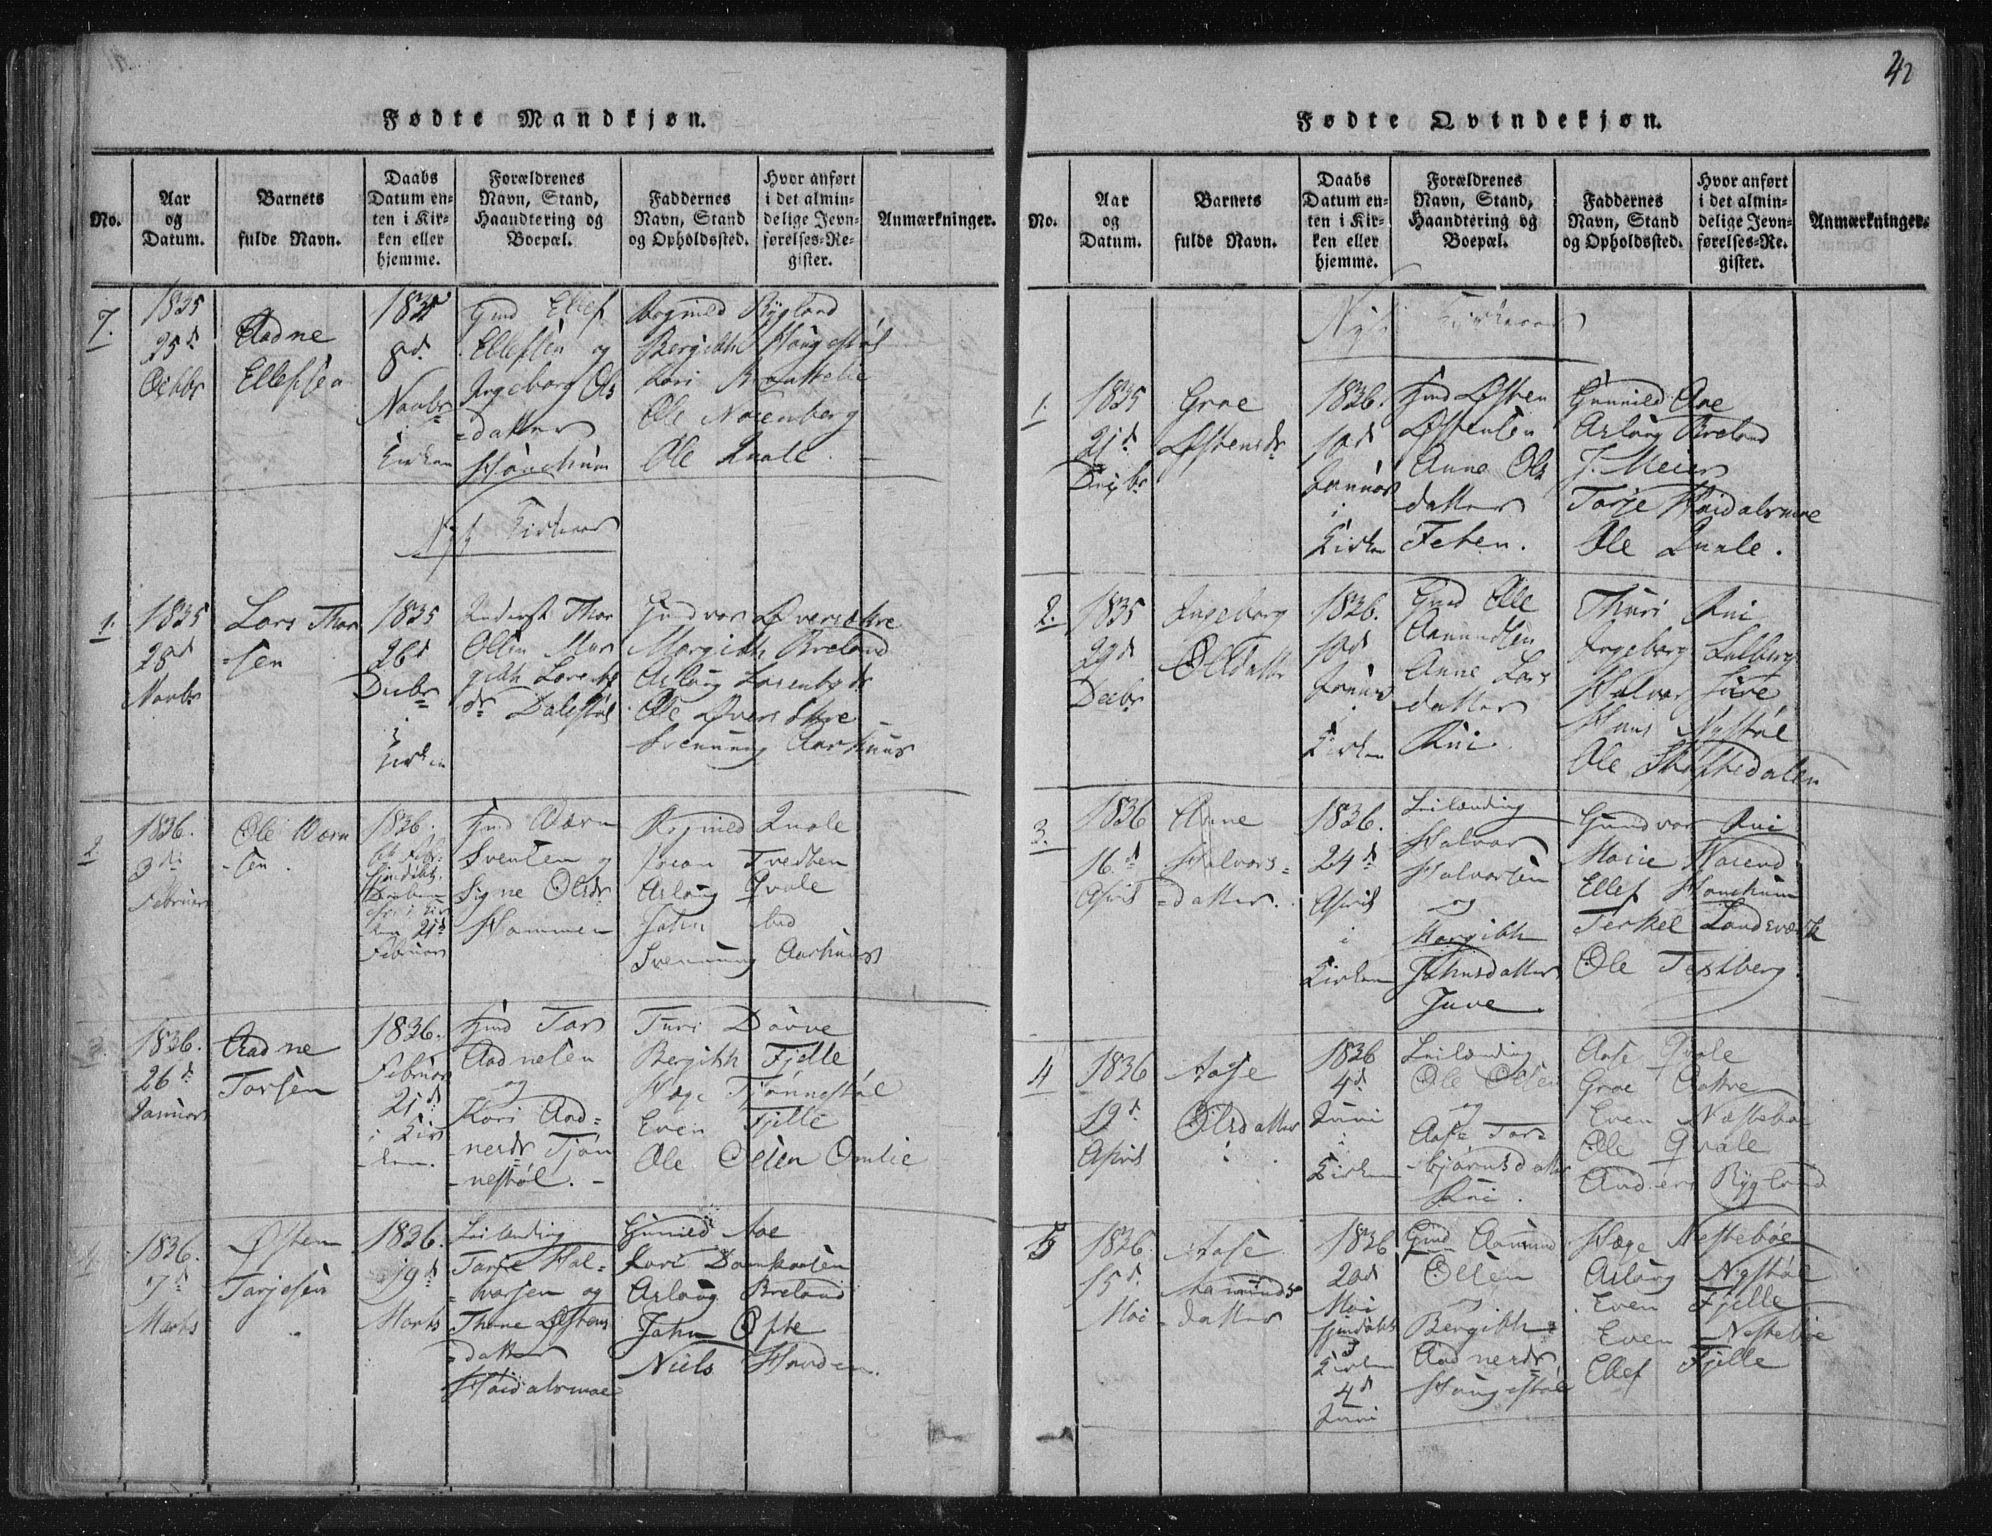 42
Fødte Mandkjøn.
No.
Aar
og
Datum.
Barnets
fulde Navn.
Daabs
Datum en-
ten i Kir-
ken eller
hjemme.
Forældrenes
Navn, Stand,
Haandtering og
Boepæl.
Faddernes
Navn, Stand
og Opholdssted.
Hvor anført
i det almin-
delige Jevn-
førelses-Re-
gister.
Anmærkninger.
7.
1835
25d
Octbr
Aadne
Ellefsen
1835
8d
Novbr
i
Kirken
Gmd Ellef
Ellefsen og
Ingeborg Ols
datter
Haughuum
Rognild Rygland
Bergith Haugestøl
Kari
Ole Norenberg
Ole Qvale.
Nyt Kirkeaar
1.
1835
28d
Novbr
Lars Thor
sen
1835
26d
Decbr
i
Kirken
Thor
Olsen Mar
gith Lorents
dr Dalestøl
Gundvor Øversakre
Margith Breland
Aslaug Lorentsdr
Ole Øversakre
Svenung Aarhuus
2
1836.
3di
Februar
Ole Værn
sen.
1836.
Kirken 21d
Februar
Gmd Værn
Svensen og
Signe Olsdr
Hommen
Rognild Qvale
Tvedten
Aslaug Qvale
John
Svenung Aarhuus
3.
1836.
26d
Januar
Aadne
Tarjesen
1836.
Februar
21d
i Kir
ken.
Gmd Tor
Aadnesen
og
Kari Aad-
nesdr Tjøn
nestøl.
Turi Dovve
Bergith Fjelle
Hæge Tjønnestøl
Even Fjelle
Ole Olsen Omlie
4
1836.
7d
Marts
Østen
Tarjesen
1836.
19d
Marts
Leilænding
Tarje Hal-
vorsen og
Thone Østens
datter
Haidalsmoe
Gunild Aae
Kari
Aslaug Breland
John Ofte
Niels Hovden.
Fødte Qvindekjøn.
No.
Aar
og
Datum.
Barnets
fulde Navn.
Daabs
Datum en-
ten i Kir-
ken eller
hjemme.
Forældrenes
Navn, Stand,
Haandtering og
Boepæl.
Faddernes
Navn, Stand
og Opholdssted.
Hvor anført
i det almin-
delige Jevn-
førelses-Re-
gister.
Anmærkninger.
Nyt Kirkeaar
1.
1835
21d
Decbr
Groe
Østensdr
1836.
10d
Januar
i
Kirken
Gmd Østen
Østensen
Anne Ols
datter
Feten.
Gunnild Aae
Aslaug Breland
J. Meier
Tarje Haidalsmoe
Ole Qvale.
2.
1835
29d
Decbr
Ingeborg
Olsdatter
1836.
10d
Januar
i
Kirken
Gmd Ole
Aamundsen
Anne Lars
datter
Rui.
Thuri Rui
Ingeborg Selberg
Halvor Juve
Hans Nystøl
Ole
3.
1836
16d
April
Anne
Halvors-
datter.
1836.
24d
April
i
Kirken
Leilænding
Halvor
Halvorsen
og
Margith
Johnsdatter
Juve
Gundvor Rui
Marie
Ellef Haughuum
Terkel Landsværk
Ole Testberg
4
1836
19d
April
Aase
Olsdatter
1836
4d
Juni
i
Kirken
Leilænding
Ole Olsen
og
Aase Tor-
bjørnsdatter
Rui.
Aase Qvale
Groe Aakre
Even Næstebøe
Ole Qvale
Anders Rygland
5
1836.
15d
Mai
Aase
Aamunds
datter
1836
20d
Mai
hjemdøbt
Kirken
4d
Juni
Gmd Aamund
Olsen
og
Bergith
Aadnesdr
Haugestøl
Hæge Nestebøe
Aslaug Nystøl
Even Fjelle
Even Nestebøe
Ellef Fjelle